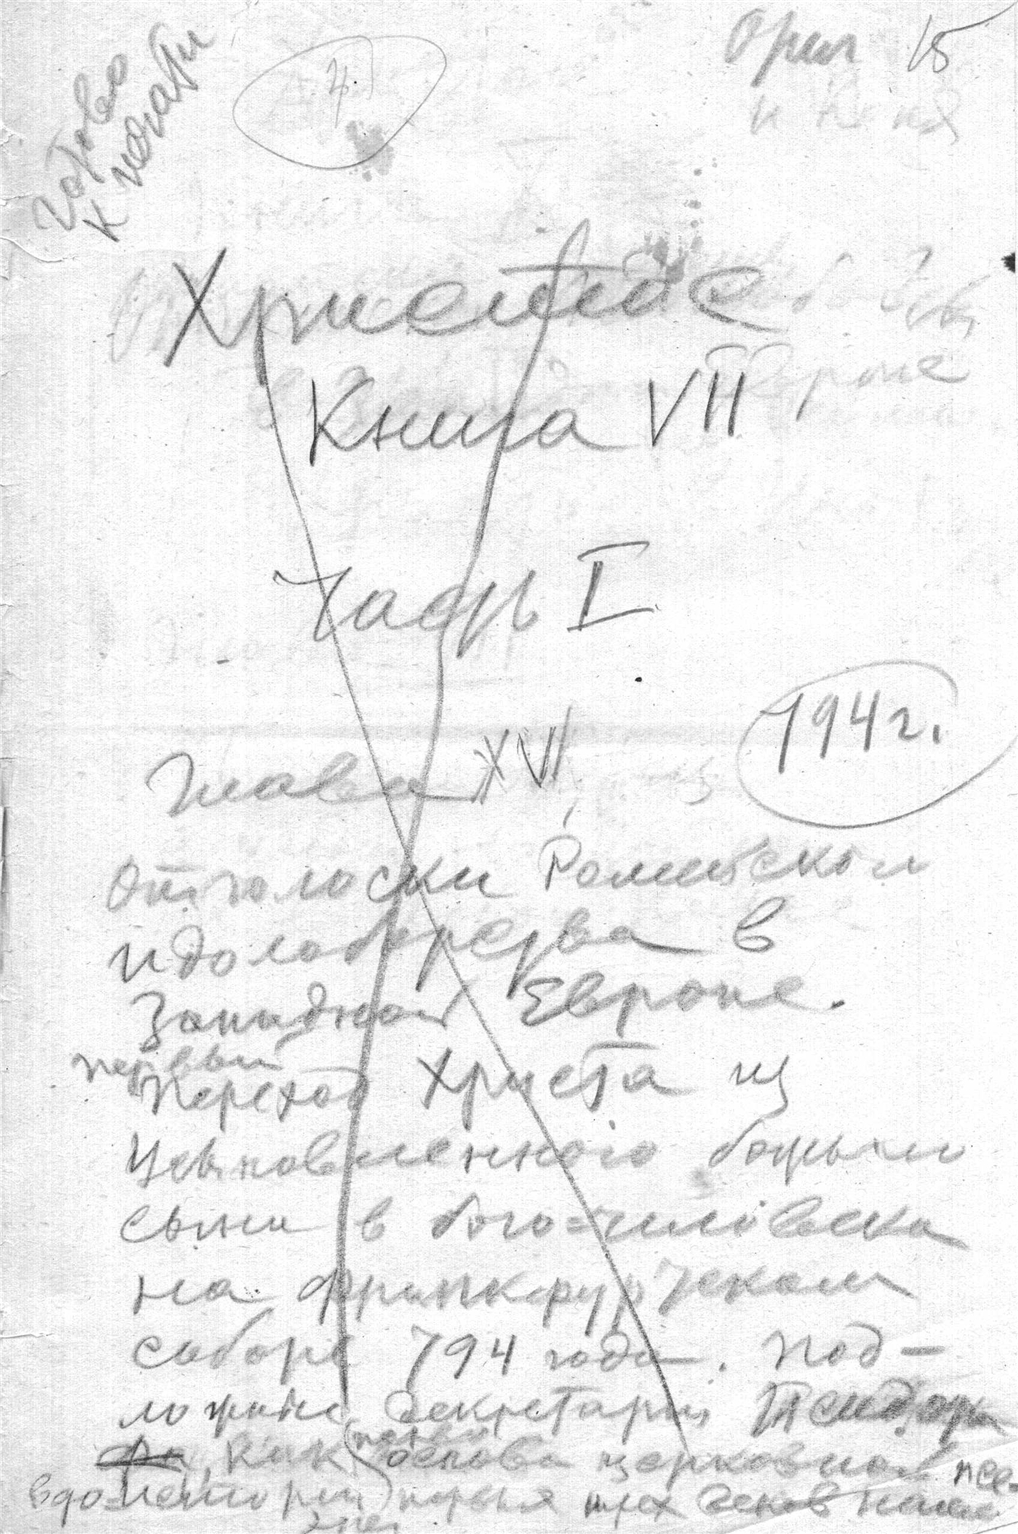 готово
к печати
4
Ориг 15
Христос
Книга VII
Часть I
794 г.
Глава XVI
Отголоски Ромейской
идолоборства в
Западной Европе.
первый
Переход Христа из
усыновленного божьего
сына в бого-человека
на франкфуртском
соборе 794 года. Под-
ложные декреталии Исидора
как основа церковной псе-
вдо-истории первых трех веков нашей
эры